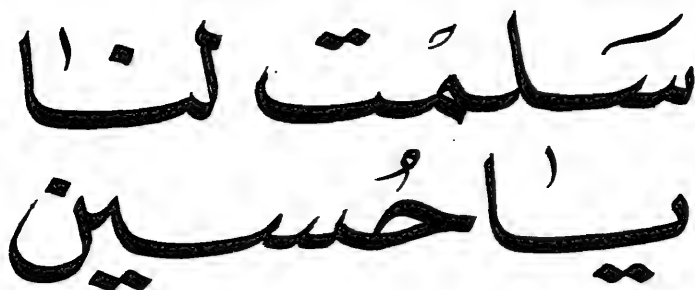 سَلمْت لنا
يا حُسين